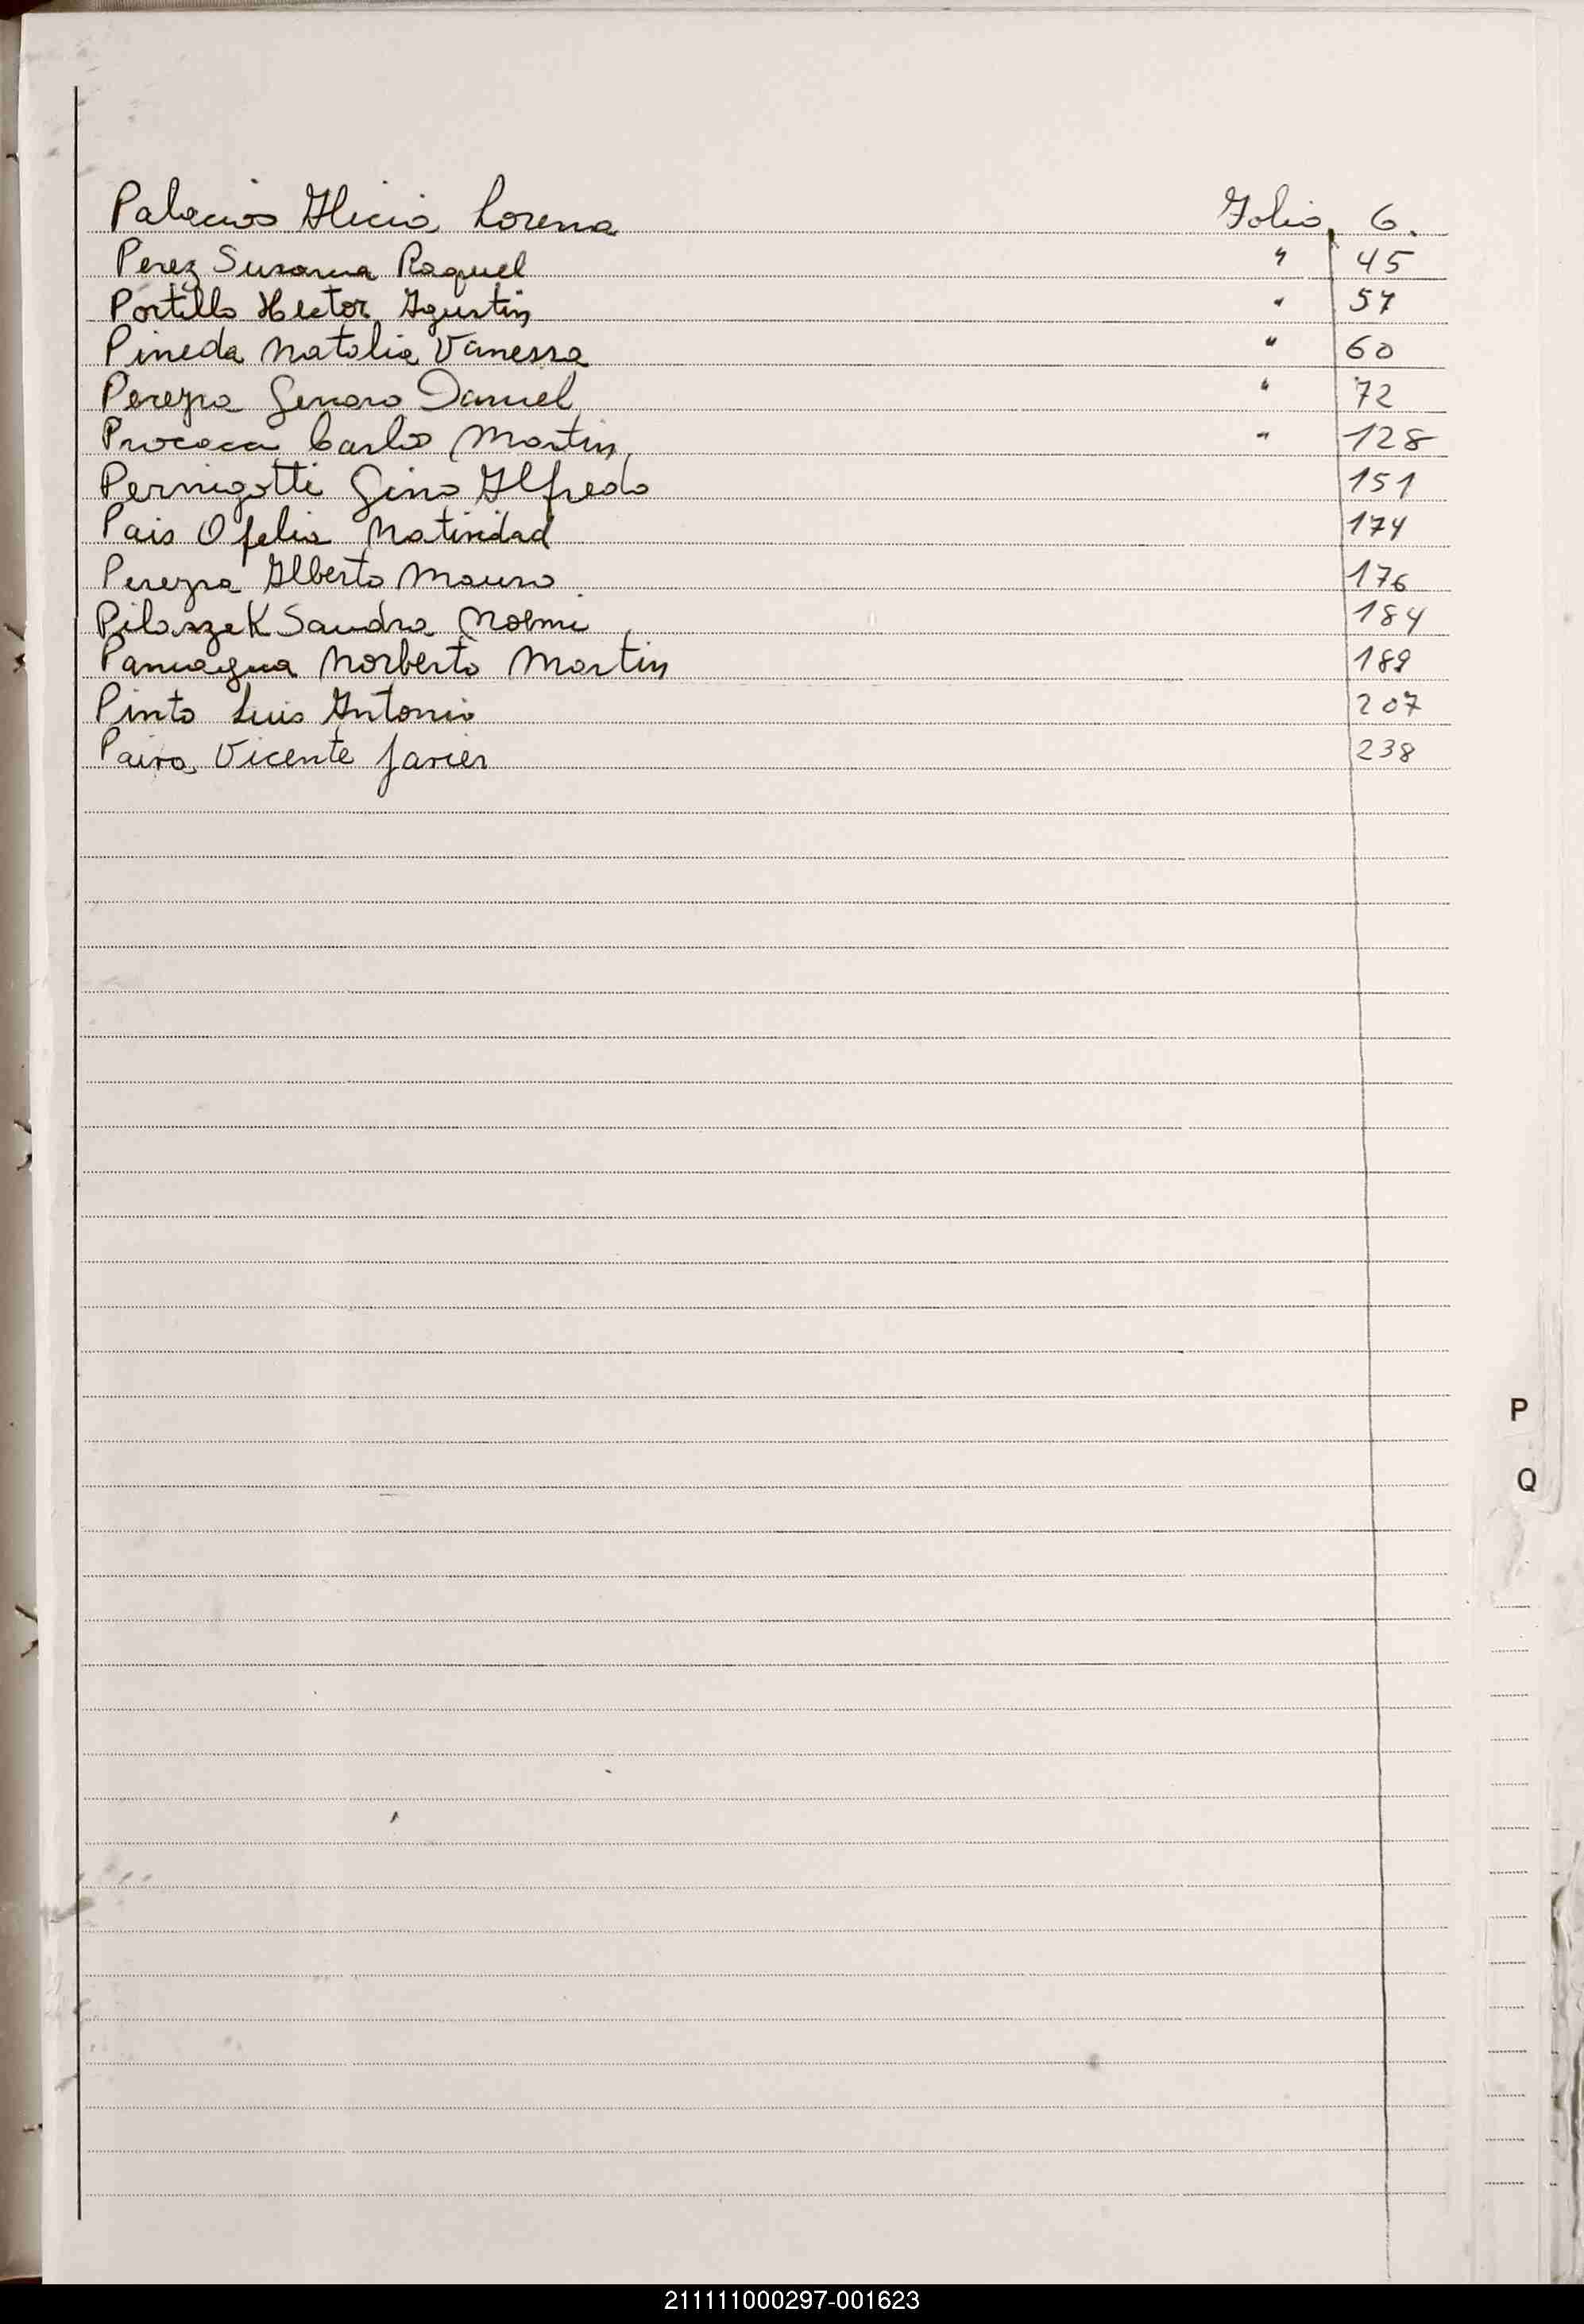 Palacios Alicia Lorena Folio 6.
Perez Susana Raquel " 45
Portillo Hector Agustin " 57
Pineda Natalia Vanessa " 60
Pereyra Genaro Daniel " 72
Carlos Martin " 128
Pernigotti Gino Alfredo 151
Pais Ofelia Natividad 174
Pereyra Alberto Mauro 176
Pilaszek Sandra Noemi 184
Paniagua Norberto Martin 189
Pinto Luis Antonio 207
Paiva Vicente Javier 238
P
Q
211111000297-001623